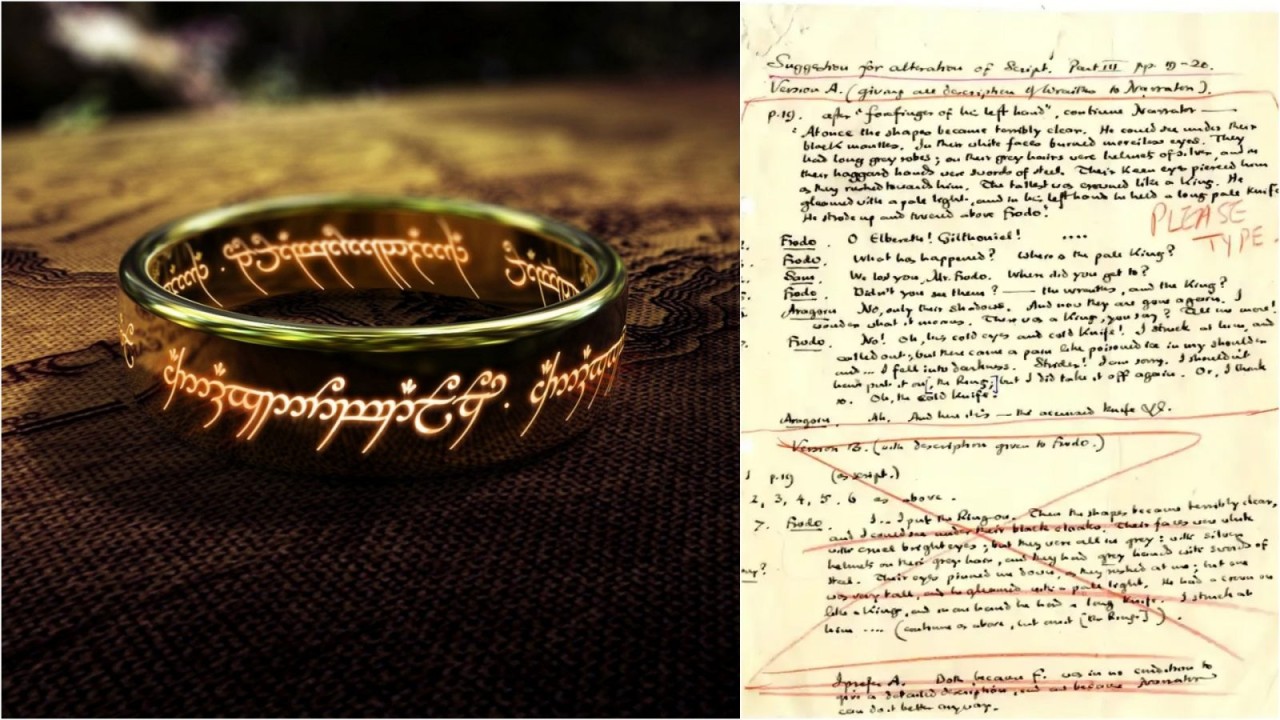 Suggestion for alteration of Script. Part III pp. 19-20.
Version A. (giving all description of Wraiths to Narrator).
p.19. after "forefinger of his left hand", continue Narrator —
'At once the shapes became terribly clear. He could see under their
black mantles. In their white faces burned merciless eyes. They
had long grey robes; on their grey hairs were helmets of silver, and in
their haggard hands were swords of steel. Their keen eyes pierced him
as they rushed toward him. The tallest was crowned like a King. He
gleamed with a pale light, and in his left hand he held a long pale knife
He strode up and towered above Frodo.'
PLEASE
TYPE.
Frodo. O Elbereth! Gilthoniel! ....
Frodo. What has happened? Where is the pale King?
Sam. We lost you, Mr. Frodo. Where did you get to?
Frodo. Didn't you see them? — the wraiths, and the King?
Aragorn No, only their shadows. And now they are gone again. I
wonder what it means. There was a King, you say? Tell me more!
Frodo. No! Oh, his cold eyes and cold knife! I struck at him, and
called out; but there came a pain like poisoned ice in my shoulder
and ... I fell into darkness. Strider! I am sorry. I shouldn't
have put it on [, the Ring;] but I did take it off again. Or, I think
so. Oh, the cold knife!
Aragorn. Ah. And here it is — the accursed knife &c.
Version B. (with description given to Frodo.)
p.19 (as script.)
2, 3, 4, 5, 6 as above.
7. Frodo. I... I put the Ring on. Then the shapes became terribly clear,
and I could see under their black cloaks. Their faces were white
with cruel bright eyes; but they were all in grey: with silver
helmets on their grey hair, and they had grey hands with swords of
steel. Their eyes pinned me down, as they rushed at me; but one
was very tall, and he gleamed with a pale light. He had a crown on
like a King, and in one hand he had a long knife. I struck at
him .... (continue as above, but omit [the Ring;] ).
I prefer A. Both because F. was in no condition to
give a detailed description, and because Narrator
can do it better anyway.